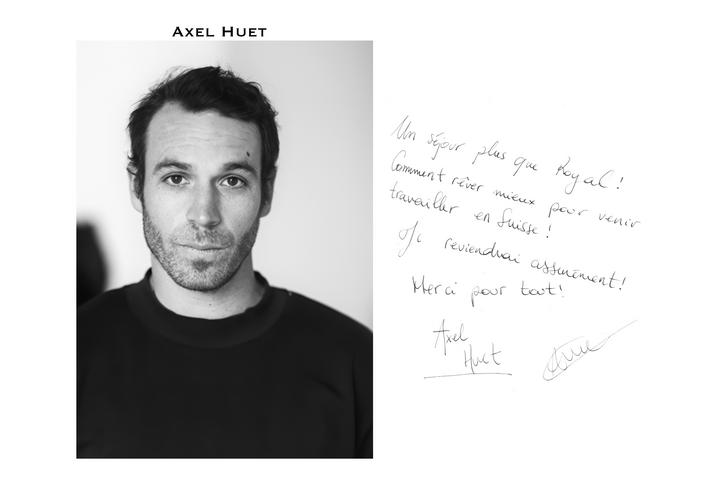 AXEL HUET
Un séjour plus que Royal!
Comment rêver mieux pour venir
travailler en Suisse!
Je reviendrai assurément!
Merci pour tout!
Axel
Huet